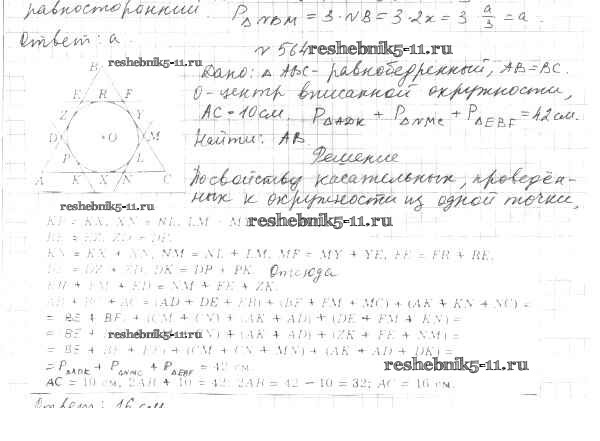 равносторонний. P△NBM = 3·NB = 3·2x = 3 a/3 = a.
Ответ: a.
№ 564 reshebnik5-11.ru
reshebnik5-11.ru
Дано: △ ABC - равнобедренный, AB = BC.
O - центр вписанной окружности,
AC = 10 см. P△ADK + P△NMC + P△EBF = 42 см.
Найти: AB.
Решение
По свойству касательных, проведён-
ных к окружности из одной точки,
B
E R F
Z Y
D O M
P L
A K X N C
reshebnik5-11.ru
reshebnik5-11.ru
KN = KX + XN, NM = NL + LM, MF = MY + YE, FE = FR + RE,
Отсюда
EH + FM + ED = NM + FE + ZK.
AB + BC + AC = (AD + DE + EB) + (BF + FM + MC) + (AK + KN + NC) =
= BE + BF + (CM + CN) + (AK + AD) + (DE + FM + KN) =
reshebnik5-11.ru + (AK + AD) + (ZK + FE + NM) =
+ (CM + CN + MN) + (AK + AD + DK) =
= P△ADK + P△NMC + P△EBF = 42 см.
reshebnik5-11.ru
AC = 10 см, 2AB + 10 = 42; 2AB = 42 – 10 = 32; AC = 16 см.
Ответ: 16 см